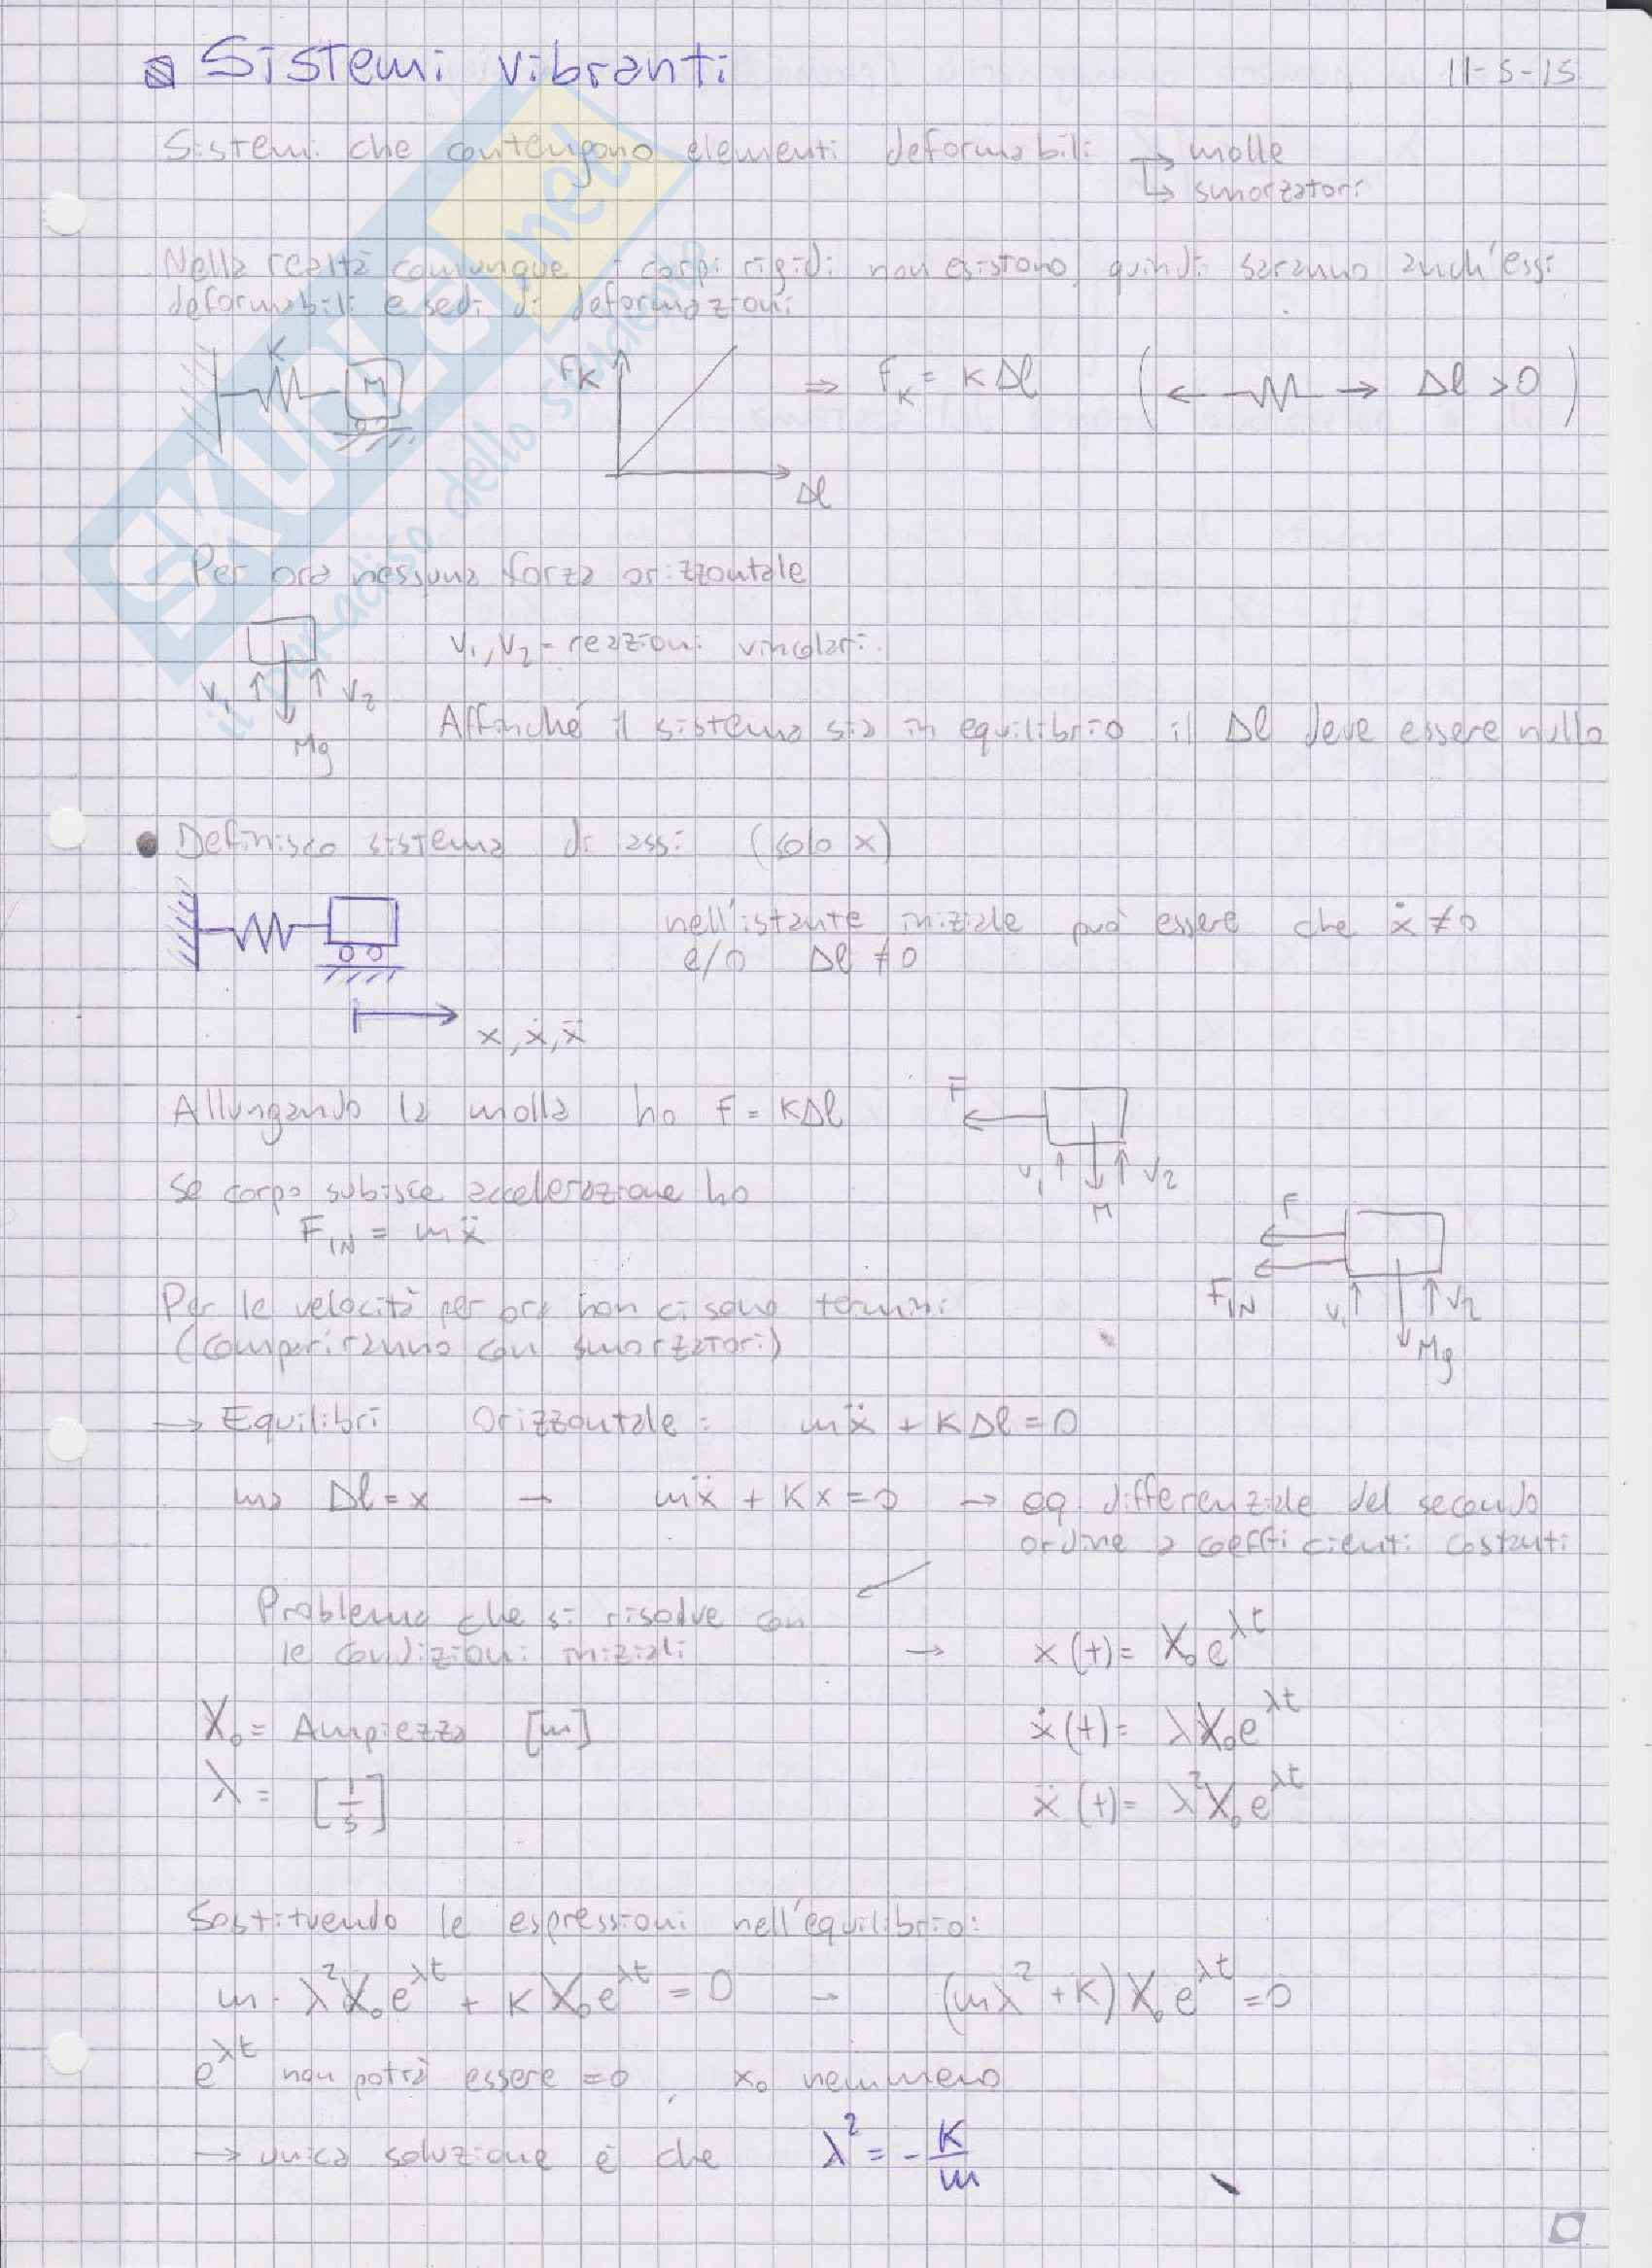 Sistemi vibranti
11-5-15
Sistemi che contengono elementi deformabili → molle
↳ smorzatori
Nella realtà comunque i corpi rigidi non esistono, quindi saranno anch'essi
deformabili e sedi di deformazioni
K
M
FK
Δl
⇒ FK = KΔl (← → Δl > 0)
Per ora nessuna forza orizzontale
V1, V2 = reazioni vincolari.
V1 V2
Mg
Affinché il sistema sia in equilibrio il Δl deve essere nullo
Definisco sistema di assi (solo x)
nell'istante iniziale può essere che ẋ ≠ 0
e/o Δl ≠ 0
x, ẋ, ẍ
Allungando la molla ho F = KΔl
F
V1 V2
M
Se corpo subisce accelerazione ho
FIN = mẍ
F
FIN
V1 V2
Mg
Per le velocità per ora non ci sono termini
(compariranno con smorzatori)
→ Equilibri Orizzontale: mẍ + KΔl = 0
ma Δl = x → mẍ + Kx = 0 → eq. differenziale del secondo
ordine a coefficienti costanti
Problema che si risolve con
le condizioni iniziali → x(t) = X₀e^λt
X₀ = Ampiezza [m] ẋ(t) = λX₀e^λt
λ = [1/s] ẍ(t) = λ²X₀e^λt
Sostituendo le espressioni nell'equilibrio:
m · λ²X₀e^λt + KX₀e^λt = 0 → (mλ² + K)X₀e^λt = 0
e^λt non potrà essere = 0, x₀ nemmeno
→ unica soluzione è che λ² = -K/m
SKUOLA.net
il paradiso dello studente